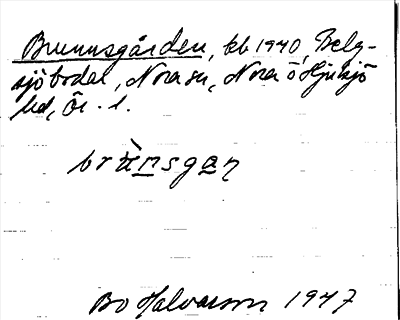 Brunnsgården, kb 1940, Belg-
sjöbodar, Nora sn, Nora o Hjulsjö
hd, Ör. l.
brùnsgaɳ
Bo Halvarson 1947